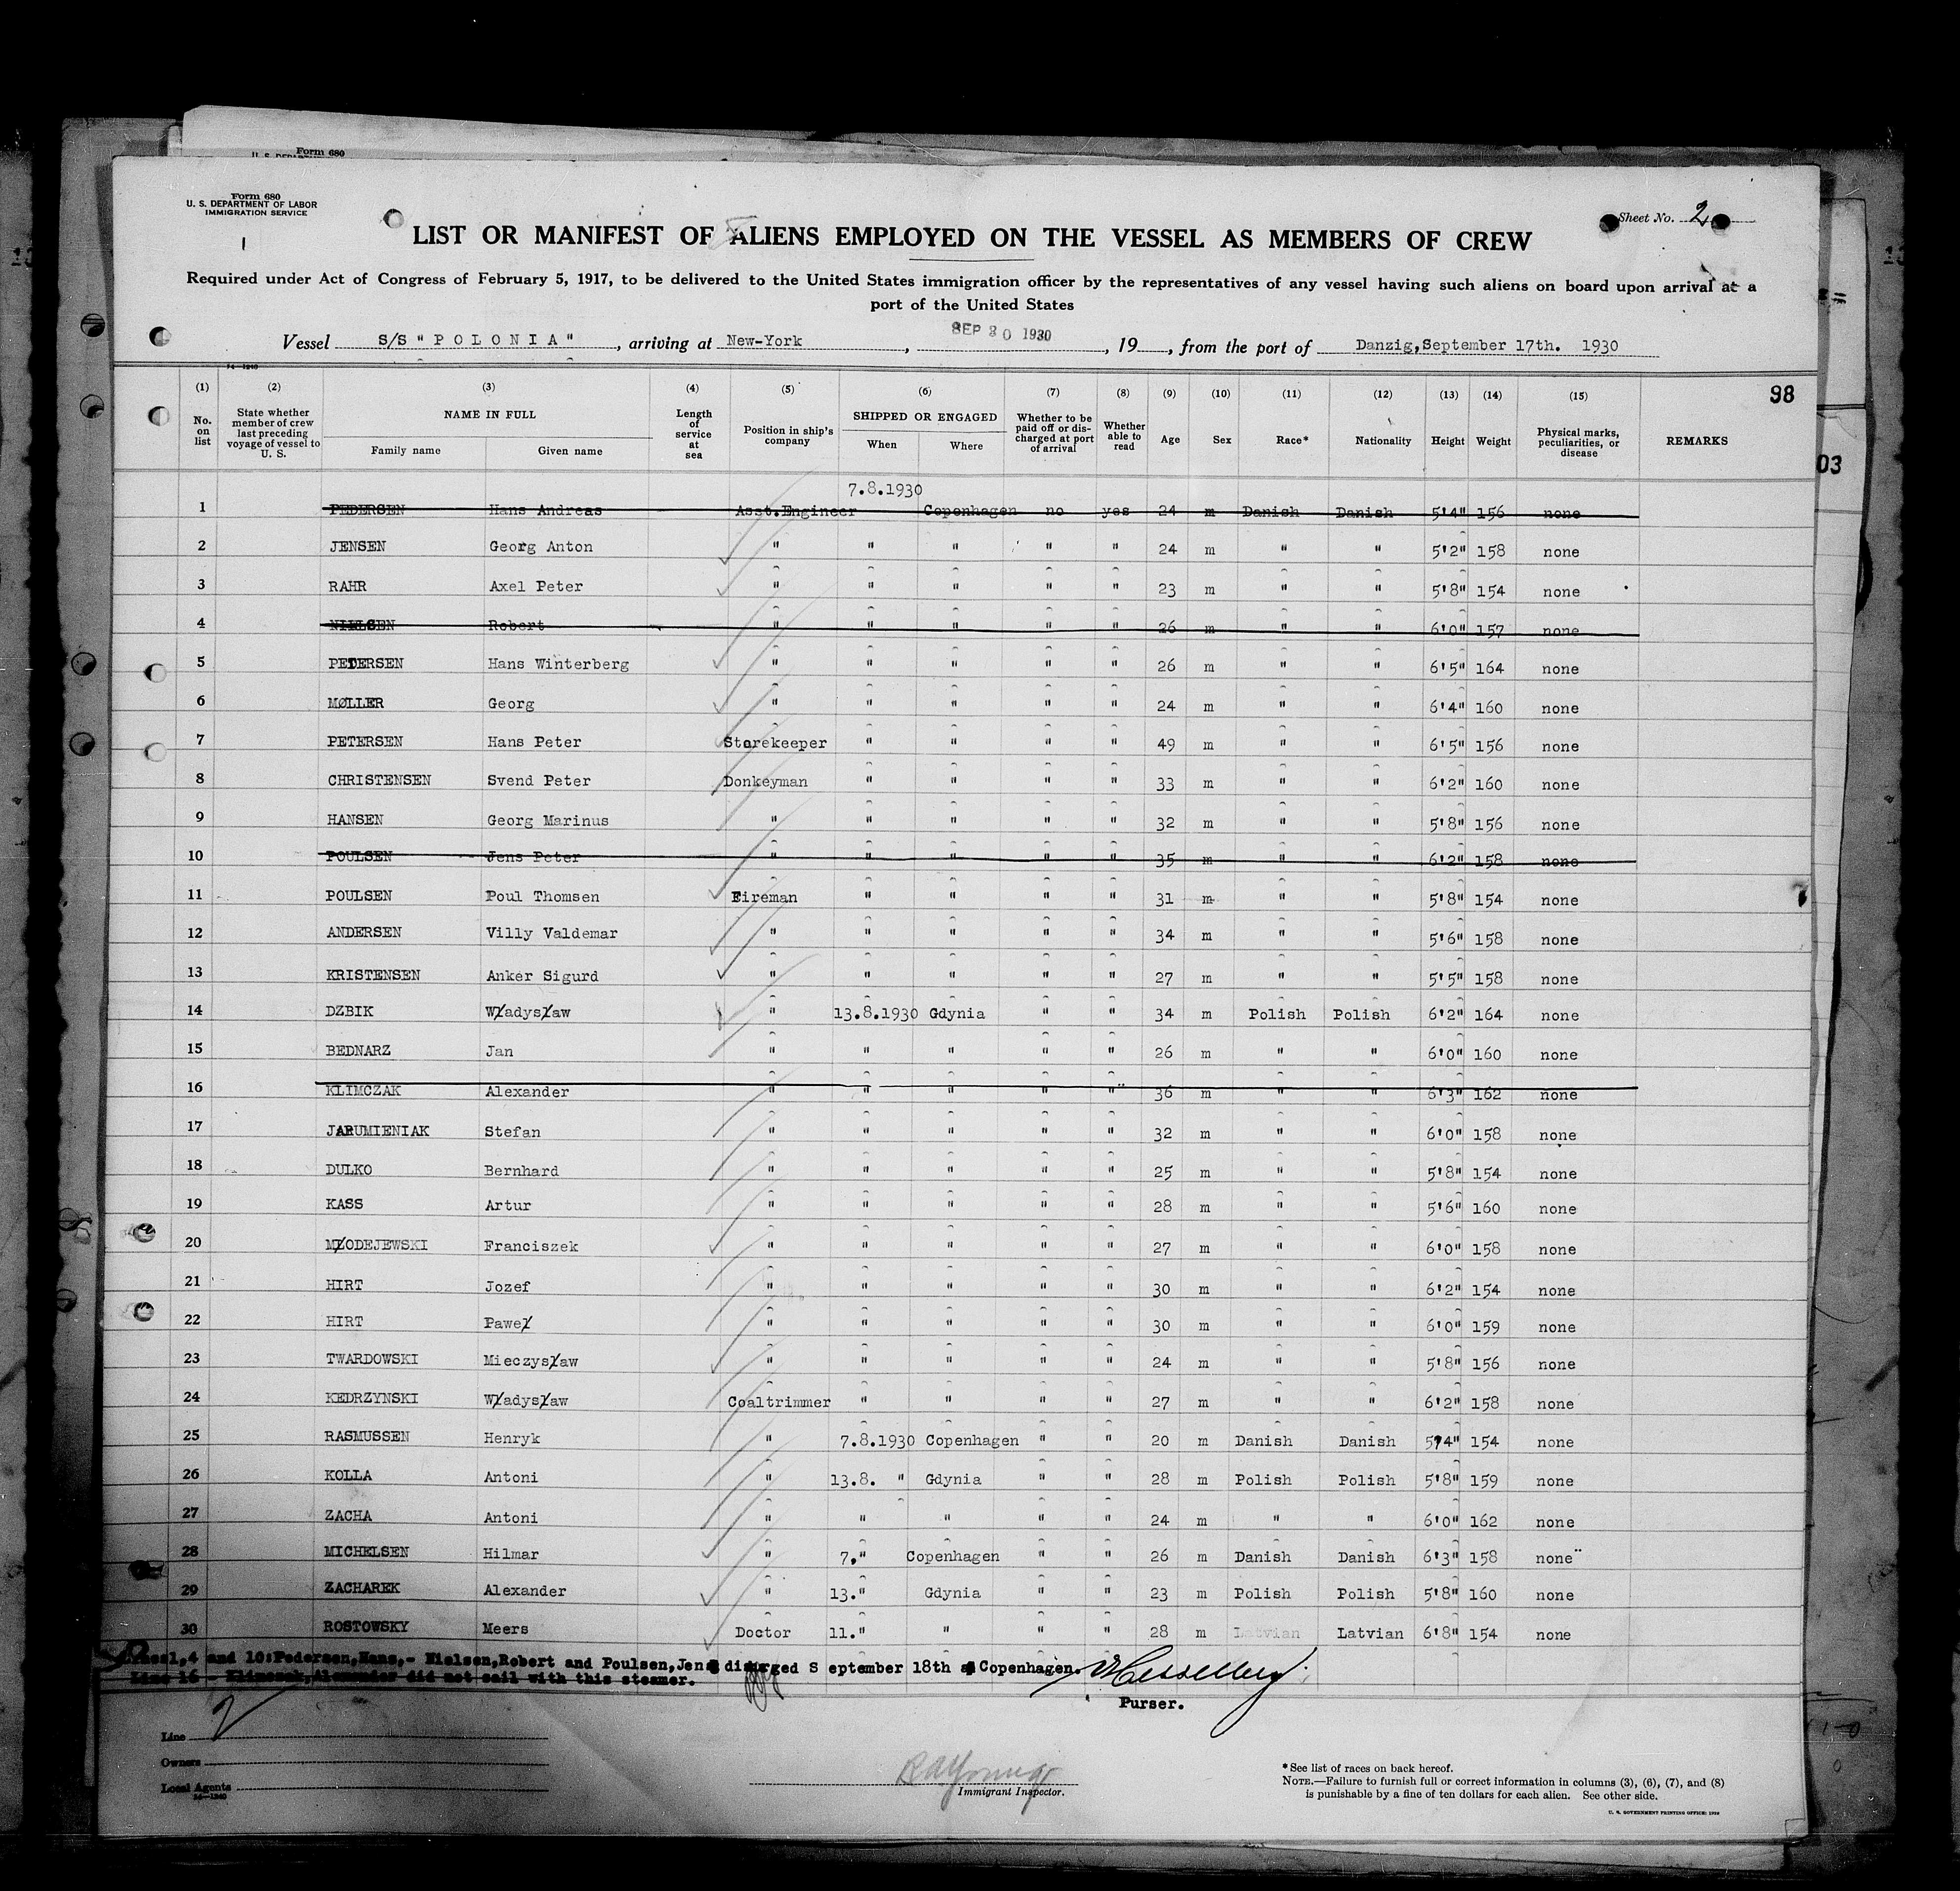 Form 680
U. S. DEPARTMENT OF LABOR
IMMIGRATION SERVICE
Form 680
Sheet No. 2
LIST OR MANIFEST OF ALIENS EMPLOYED ON THE VESSEL AS MEMBERS OF CREW
Required under Act of Congress of February 5, 1917, to be delivered to the United States immigration officer by the representatives of any vessel having such aliens on board upon arrival at a
port of the United States
SEP 30 1930
Vessel S/S "POLONIA", arriving at New-York, , 19 , from the port of Danzig,September 17th. 1930
14-1240
98
03
(1) (2) (3) (4) (5) (6) (7) (8) (9) (10) (11) (12) (13) (14) (15)
No. on list State whether member of crew last preceding voyage of vessel to U. S. NAME IN FULL Family name Given name Length of service at sea Position in ship's company SHIPPED OR ENGAGED When Where Whether to be paid off or discharged at port of arrival Whether able to read Age Sex Race* Nationality Height Weight Physical marks, peculiarities, or disease REMARKS
7.8.1930
1 PEDERSEN Hans Andreas Asst.Engineer Copenhagen no yes 24 m Danish Danish 5'4" 156 none
2 JENSEN Georg Anton " " " " " 24 m " " 5'2" 158 none
3 RAHR Axel Peter " " " " " 23 m " " 5'8" 154 none
4 NIELSEN Robert " " " " " 26 m " " 6'0" 157 none
5 PEDERSEN Hans Winterberg " " " " " 26 m " " 6'5" 164 none
6 MØLLER Georg " " " " " 24 m " " 6'4" 160 none
7 PETERSEN Hans Peter Storekeeper " " " " 49 m " " 6'5" 156 none
8 CHRISTENSEN Svend Peter Donkeyman " " " " 33 m " " 6'2" 160 none
9 HANSEN Georg Marinus " " " " " 32 m " " 5'8" 156 none
10 POULSEN Jens Peter " " " " " 35 m " " 6'2" 158 none
11 POULSEN Poul Thomsen Fireman " " " " 31 m " " 5'8" 154 none
12 ANDERSEN Villy Valdemar " " " " " 34 m " " 5'6" 158 none
13 KRISTENSEN Anker Sigurd " " " " " 27 m " " 5'5" 158 none
14 DZBIK Władysław " 13.8.1930 Gdynia " " 34 m Polish Polish 6'2" 164 none
15 BEDNARZ Jan " " " " " 26 m " " 6'0" 160 none
16 KLIMCZAK Alexander " " " " " 36 m " " 6'3" 162 none
17 JARUMIENIAK Stefan " " " " " 32 m " " 6'0" 158 none
18 DULKO Bernhard " " " " " 25 m " " 5'8" 154 none
19 KASS Artur " " " " " 28 m " " 5'6" 160 none
20 MŁODEJEWSKI Franciszek " " " " " 27 m " " 6'0" 158 none
21 HIRT Jozef " " " " " 30 m " " 6'2" 154 none
22 HIRT Paweł " " " " " 30 m " " 6'0" 159 none
23 TWARDOWSKI Mieczysław " " " " " 24 m " " 5'8" 156 none
24 KEDRZYNSKI Władysław Coaltrimmer " " " " 27 m " " 6'2" 158 none
25 RASMUSSEN Henryk " 7.8.1930 Copenhagen " " 20 m Danish Danish 5'4" 154 none
26 KOLLA Antoni " 13.8. " Gdynia " " 28 m Polish Polish 5'8" 159 none
27 ZACHA Antoni " " " " " 24 m " " 6'0" 162 none
28 MICHELSEN Hilmar " 7." Copenhagen " " 26 m Danish Danish 6'3" 158 none
29 ZACHAREK Alexander " 13." Gdynia " " 23 m Polish Polish 5'8" 160 none
30 ROSTOWSKY Meers Doctor 11." " " " 28 m Latvian Latvian 6'8" 154 none
1,4 and 10:Pedersen,Hans,- Nielsen,Robert and Poulsen,Jens September 18th Copenhagen.
Line 16 - Klimczak,Alexander did not sail with this steamer.
Purser.
Line
Owners
Local Agents
14-1240
Immigrant Inspector.
*See list of races on back hereof.
NOTE.—Failure to furnish full or correct information in columns (3), (6), (7), and (8)
is punishable by a fine of ten dollars for each alien. See other side.
U. S. GOVERNMENT PRINTING OFFICE: 1929